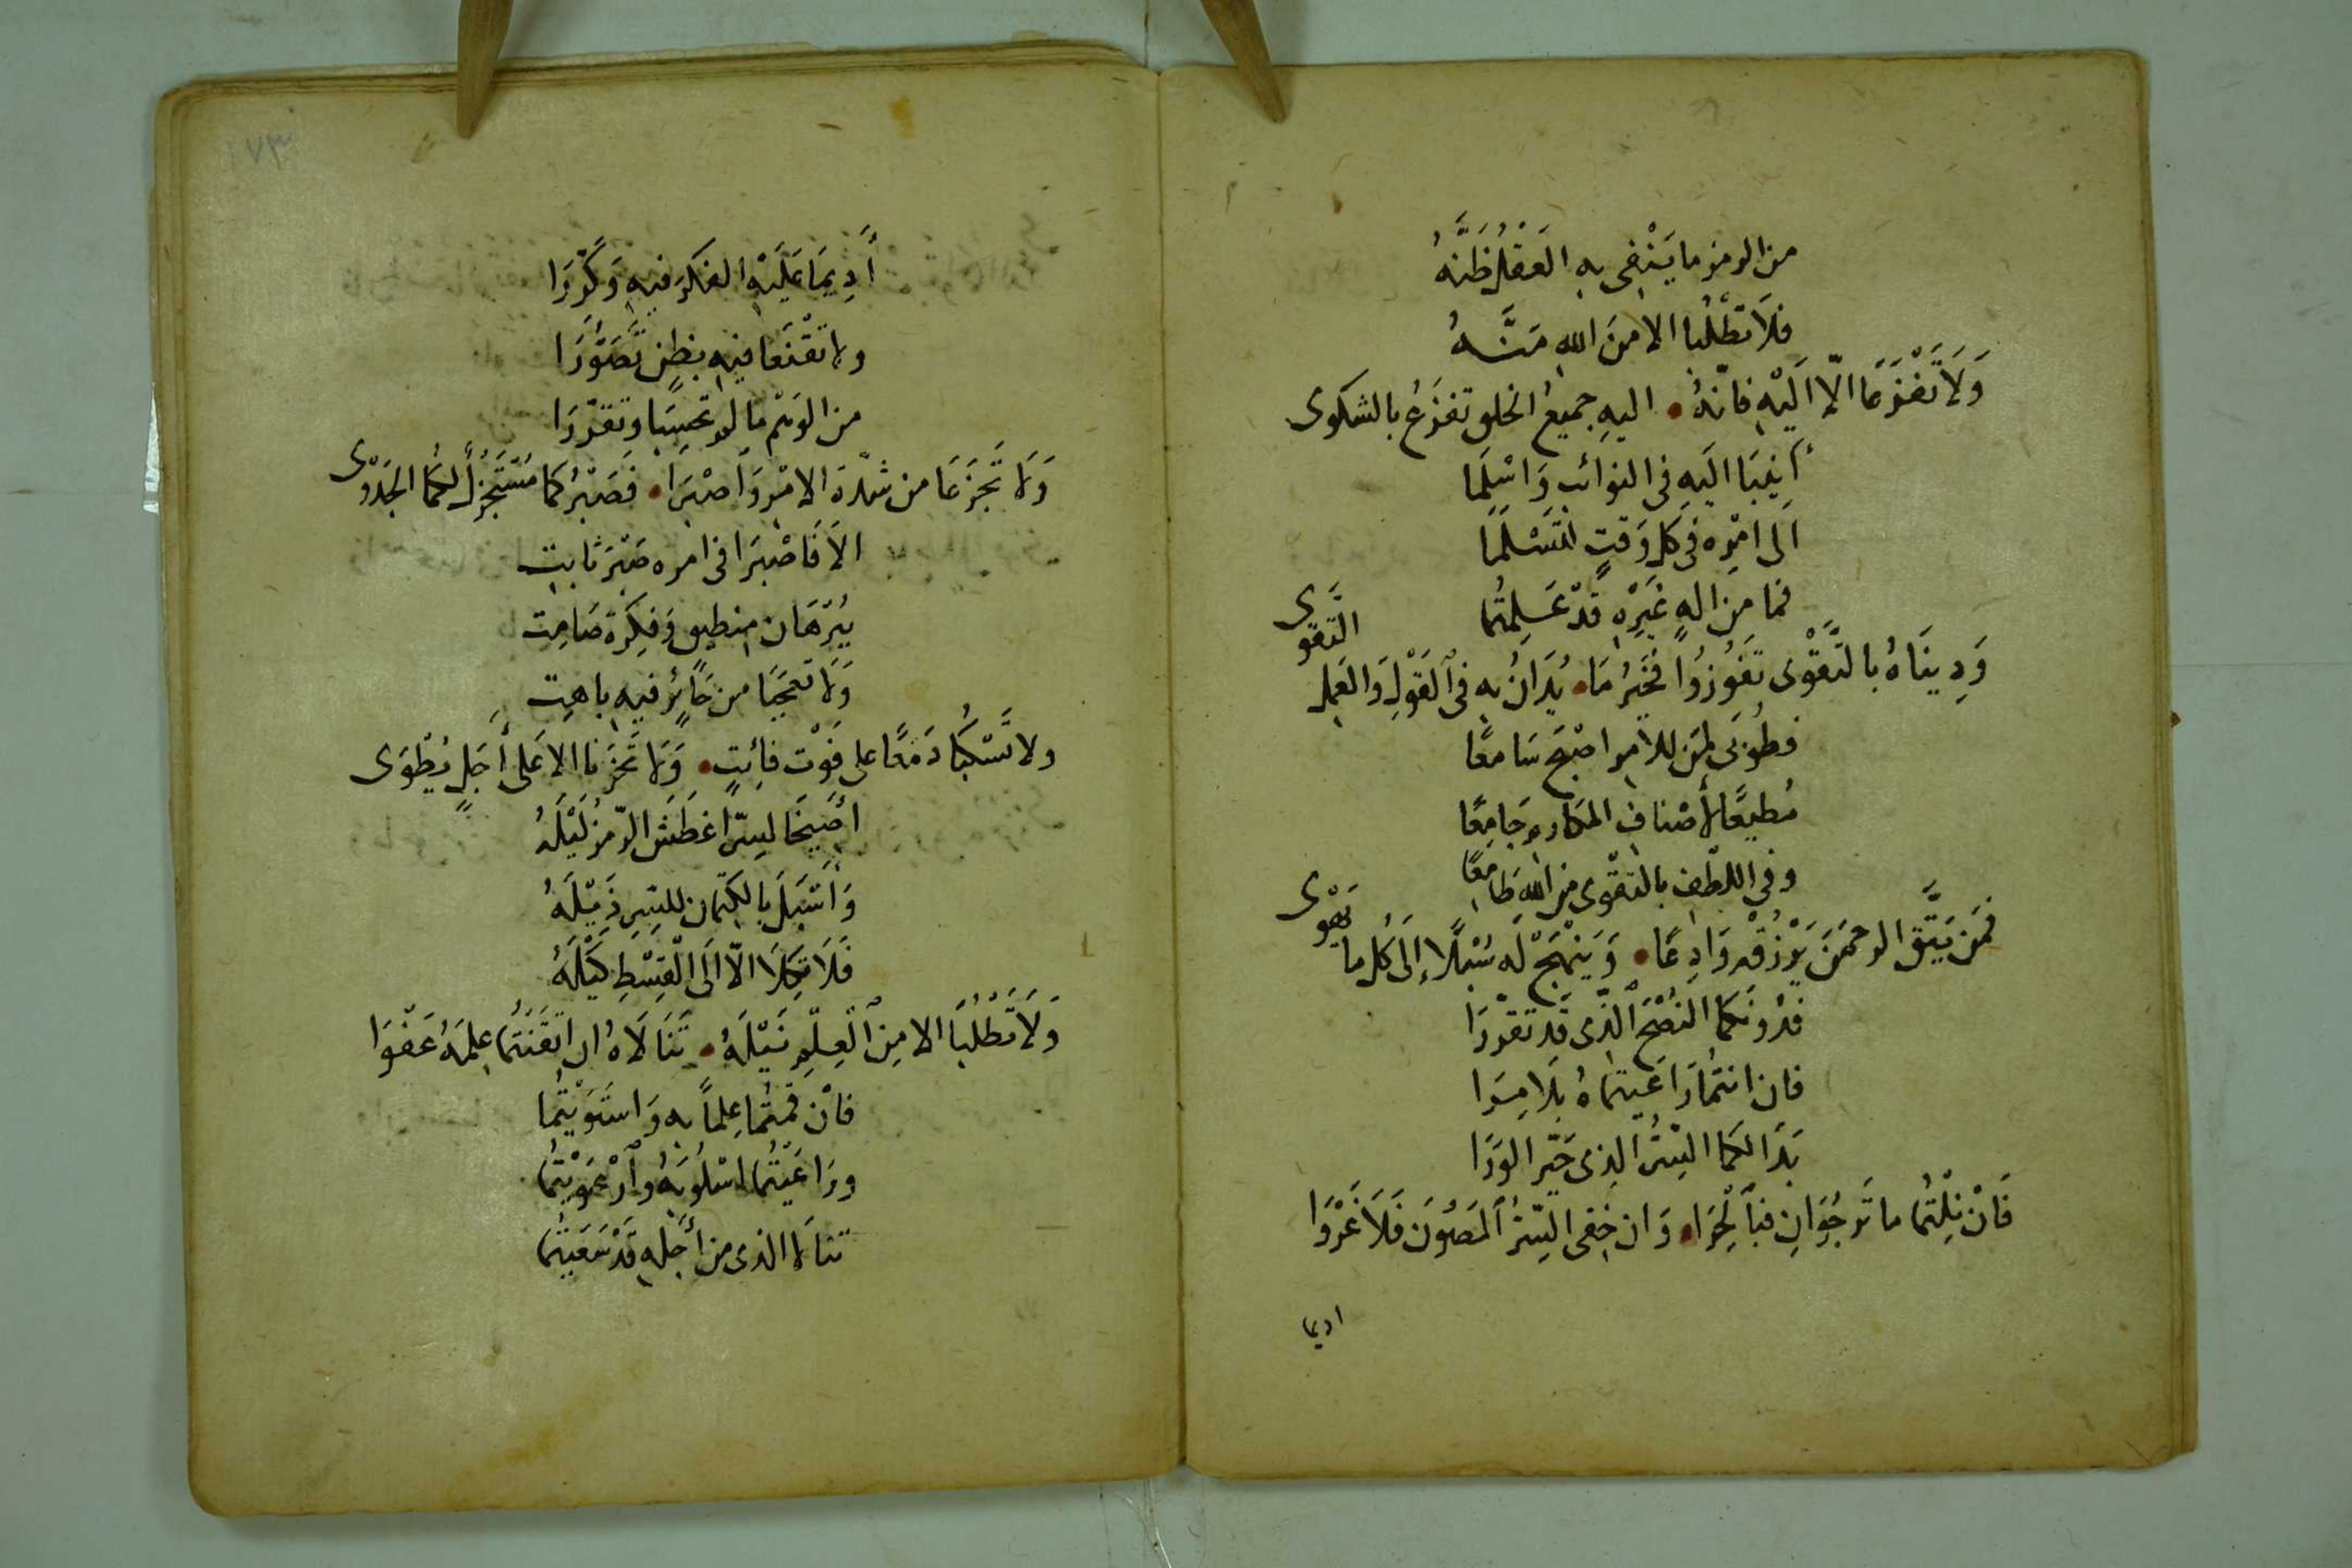 من الرمز ما ينفى به العقل ظنه
فَلاَ تَطْلُبا الا منَ الله مَنَّهُ
وَلاَ تَفْزَعَا الّا اِلَيْهِ فانّهُ • اليهِ جميعُ الخلق تفزَعُ بالشكوى
أَنِيبَا اليَهِ فى النوائب وَاسْلِمَا
الَى امْرِه فى كل وَقتٍ لتَسْلمَا
فما من الهٍ غَيْرِهِ قَدْ عَلِمتُما
وَدِينَاهُ بالتَّقْوى تَفُوزُوا فخَيْرُ مَا • يُدَانُ به فى اَلقَوْلِ وَالعَمِل التَّقوَى
فطُوبَى لِمَن للامرِ اصْبَحَ سَامعًا
مُطيعًا لأصْنافِ المكارمِ جَامِعًا
وفى اللطف بالتقْوى من اللهَ طَامِعًا
فمَن يَتَّقِ الرحمَنَ يَرْزُقْه وَادِعًا • وَيَنْهَجْ لَه سُبْلًا إلَى كُل ما يَهْوَى
فدُونَكما النُصْحَ اَلّذى قَد تقرّرَا
فان انتمُا رَاعَيتمَاهُ بَلَا مِرَا
بَدَا لكما السِّرُ الذى حَيّر الوَرَا
فَانْ نِلْتُمَا ما تَرجُوَانِ فبَالْحِرَا • وَان خفِى السِّرُ اَلمَصُونَ فَلاَ غَرْوَا
اديما
١٧٣
أَدِيمَا عَلَيْهِ الفكرَ فيهِ وَكَرِّرَا
ولا تقْنَعا فيهِ بظنٍ تَصَوَّرَا
من الوَهْمِ ما لم تحسِبَا وتقرّرَا
وَلا تَجْزَعَا من شدّةِ الامْرِ وَاصْبِرَا • فَصَبْرُكما مُسْتَجْزِلٌ لكمُا الجَدْوَى
الاَ فَاصْبرَا فى امره صَبْرَ ثابتٍ
بُبرْهَان منطيق وَفكرَة صَامِت
وَلا تعجَبَا من حَائرٍ فيهِ باهِت
ولا تَسْكُبا دَمْعًا على فَوْتِ فائتٍ • وَلا تَحْزنا الا عَلى أَجَلٍ يُطْوَى
أَصِيخَا لسِرّ اغطَشَ الرّمزُ لَيْلَهُ
وَأَسْبَلَ بالكتمان للسِّرِ ذَيْلَهُ
فَلاَ تكِلاَ الّا الَى الْقِسْطِ كَيْلَهُ
وَلاَ تَطْلُبَا الا مِنَ اَلْعِلْمِ نَيْلَهُ • تَنَالَاهُ ان اتْقَنْتُمَا عِلمَهُ عَفْوَا
فانْ قمتُما عِلماً به وَاسْتَوَيْتُما
ورَاعَيْتُما اسْلُوبَهُ وَاَرْعَوَيْتُما
تنالا الذى من أَجْلِهِ قَدْ سَعَيتُما